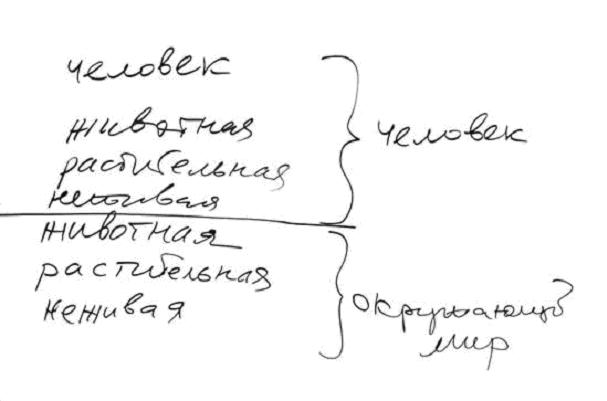 человек
животная
растительная
неживая
человек
животная
растительная
неживая
окружающий
мир